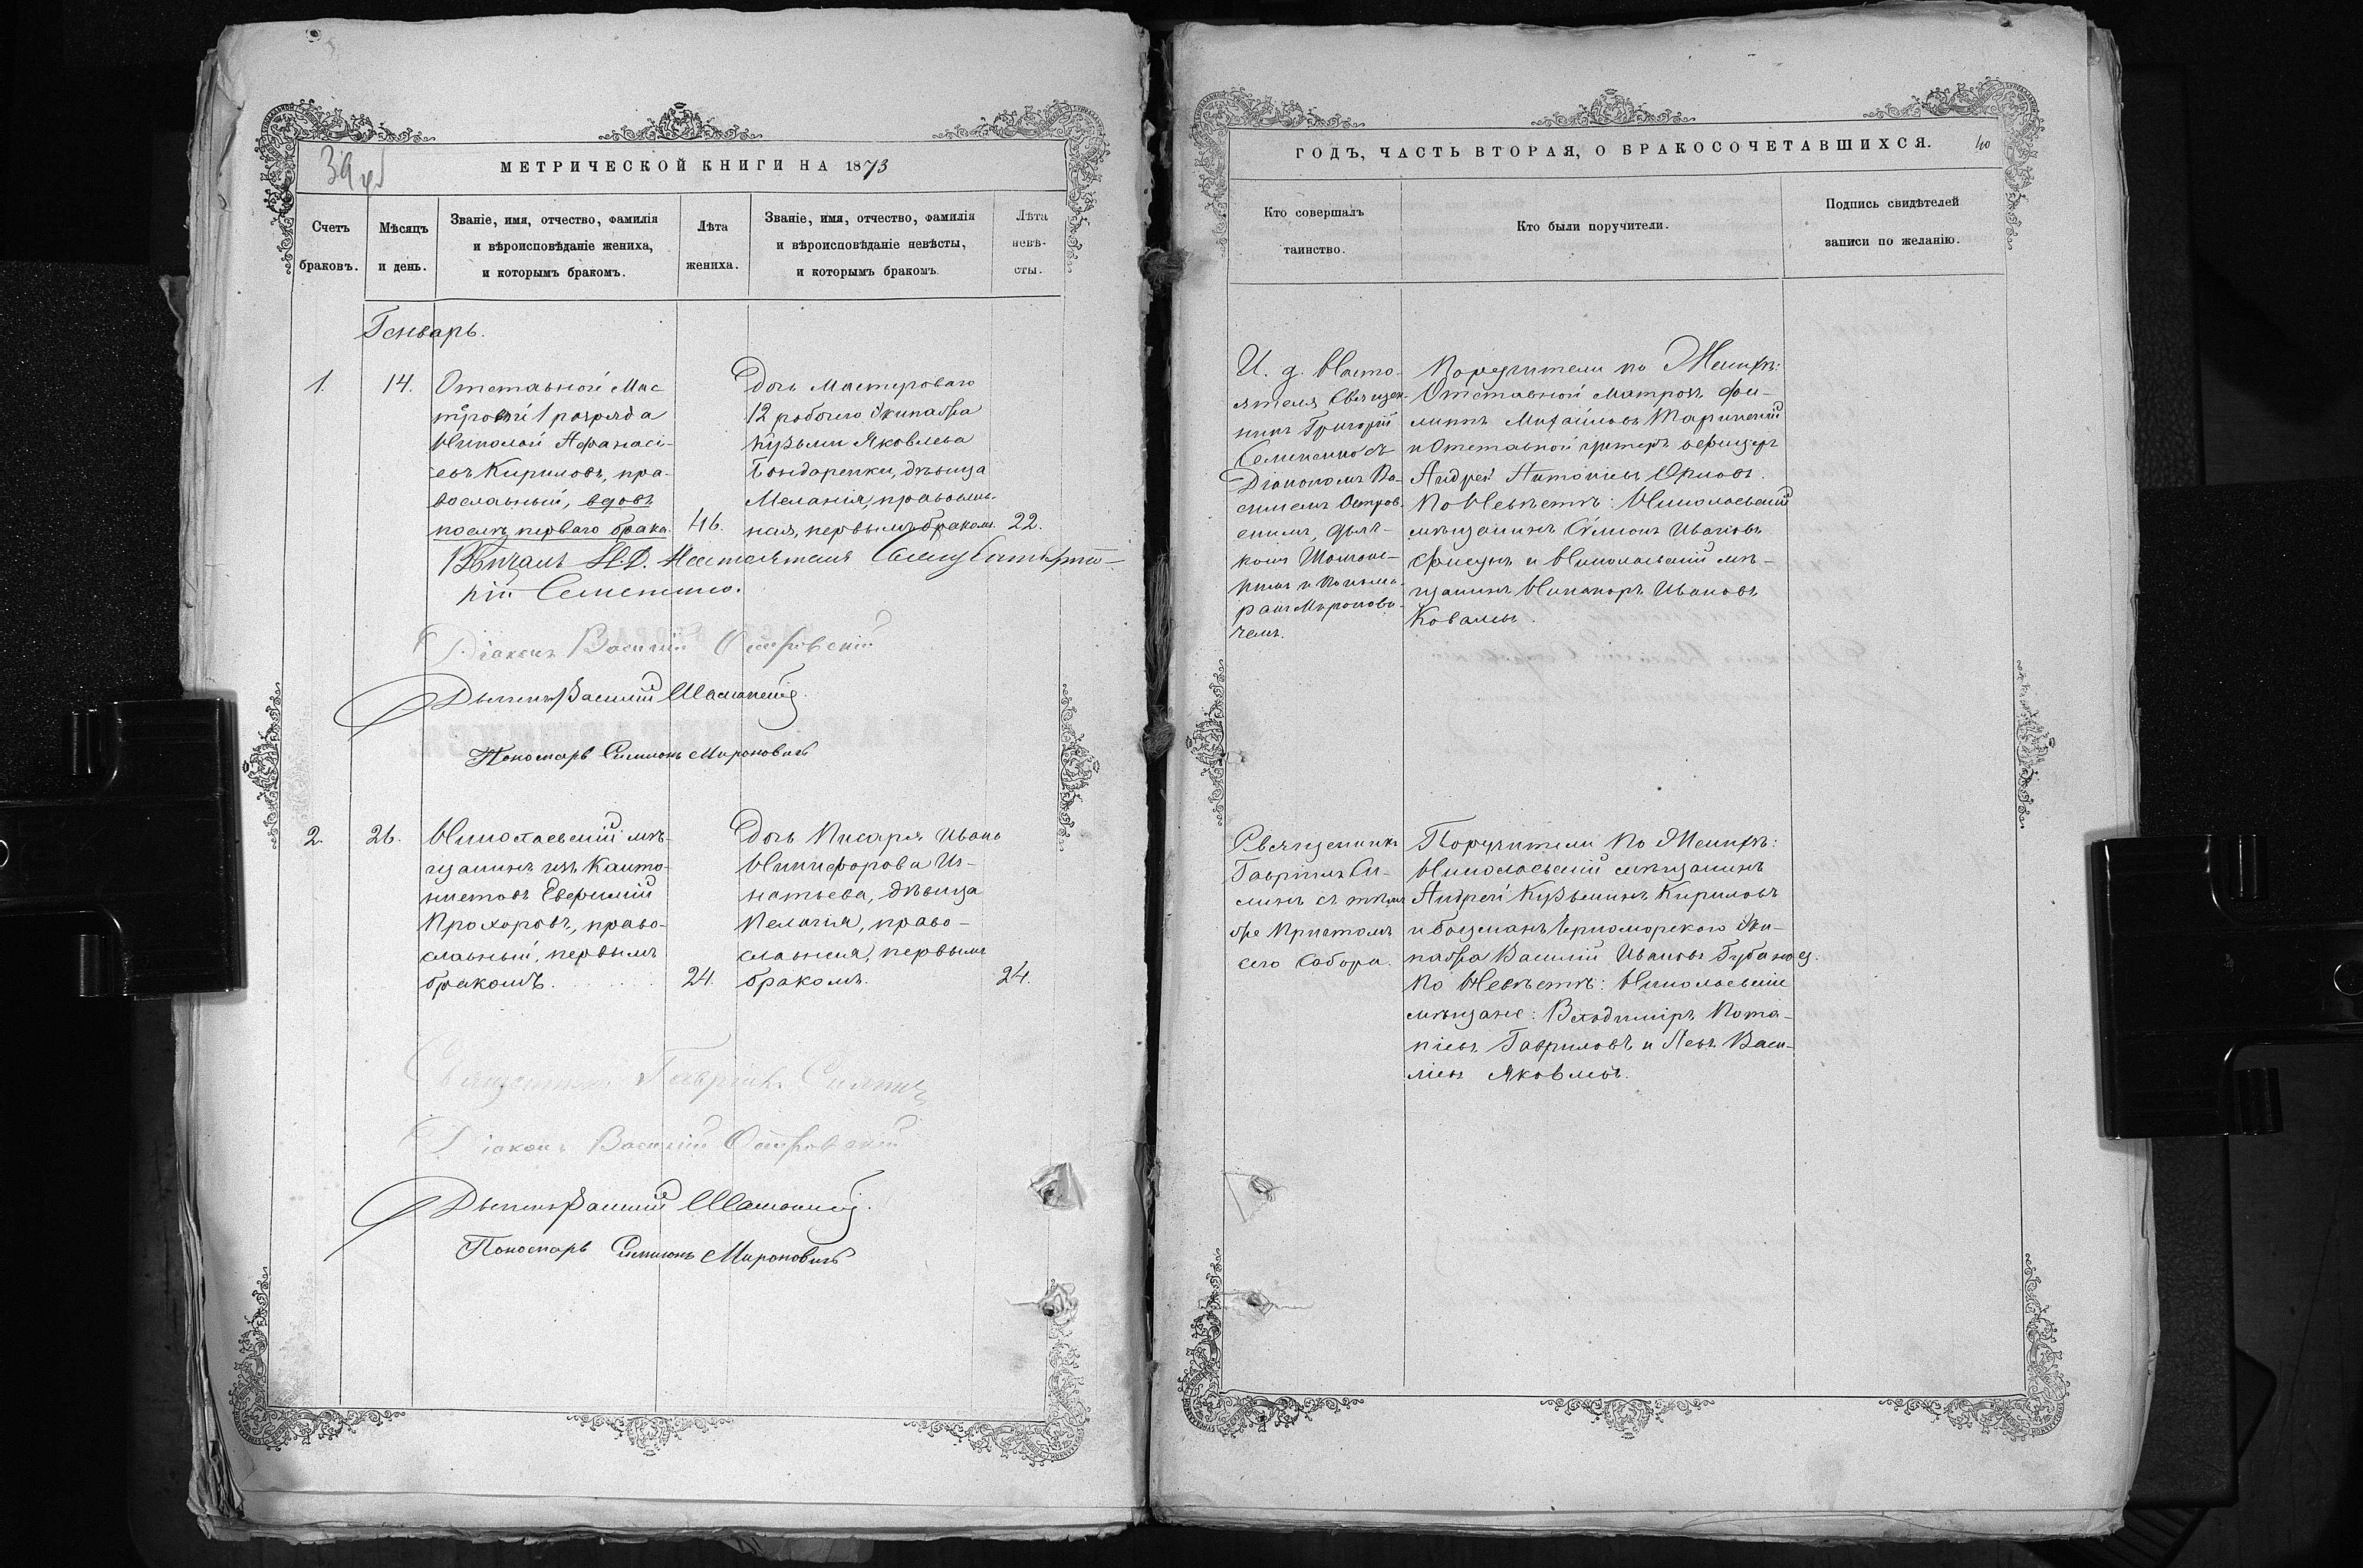 МЕТРИЧЕСКОЙ КНИГИ НА 1873
Счетъ браковъ.
Мѣсяцъ и день.
Званіе, имя, отчество, фамилія
и вѣроисповѣданіе жениха,
и которымъ бракомъ.
Лѣта жениха.
Званіе, имя, отчество, фамилія
и вѣроисповѣданіе невѣсты,
и которымъ бракомъ.
Лѣта невѣ-
сты.
Генварь.
1.
14.
Отставной Мас
теровой 1 разряда
Николай Афанасі-
евъ Кириловъ, пра-
вославный, вдовъ
послѣ перваго брака.
46.
Дочь Мастероваго
12 рабочаго Экипажа
Кузьмы Яковлева
Бондаренки, дѣвица
Меланія, православ-
ная, первымъ бракомъ.
22.
Вѣнчалъ И.Д. Настоятеля
Семененко.
Діаконъ Василій Островскій
Дьячекъ Василій
Пономарь Симеонъ Мироновичъ
2.
26.
Николаевскій мѣ-
щанинъ изъ Канто-
нистовъ Евфимій
Прохоровъ, право-
славный, первымъ
бракомъ.
24.
Дочь Писаря Ивана
Никифорова Иг-
натьева, дѣвица
Пелагія, право-
славная, первымъ
бракомъ.
24.
Священникъ Гавріилъ Силинъ
Діаконъ Василій Островскій
Дьячекъ Василій
Пономарь Симеонъ Мироновичъ
ГОДЪ, ЧАСТЬ ВТОРАЯ, О БРАКОСОЧЕТАВШИХСЯ.
40
Кто совершалъ
таинство.
Кто были поручители.
Подпись свидѣтелей
записи по желанію.
И. д. Насто-
ятеля Священ-
никъ Григорій
Семененко съ
Діакономъ Ва-
силіемъ Остров-
скимъ, дьяч-
комъ
и Понома-
ремъ Миронови-
чемъ.
Поручители по Женихѣ:
Отставной матросъ Фи-
липпъ Михайловъ
и Отставной унтеръ офицеръ
Андрей Антоніевъ Орловъ.
По Невѣстѣ: Николаевскій
мѣщанинъ Симеонъ Ивановъ
и Николаевскій мѣ-
щанинъ Никаноръ Ивановъ
Ковалевъ.
Священникъ
Гавріилъ Си-
линъ съ тѣмъ
же Причтомъ
сего Собора.
Поручители по Женихѣ:
Николаевскій мѣщанинъ
Андрей Кузьминъ Кириловъ
и боцманъ Черноморскаго Эки-
пажа Василій Ивановъ
По Невѣстѣ: Николаевскіе
мѣщане: Владиміръ Пота-
піевъ Гавриловъ и Левъ Васи-
ліевъ Яковлевъ.